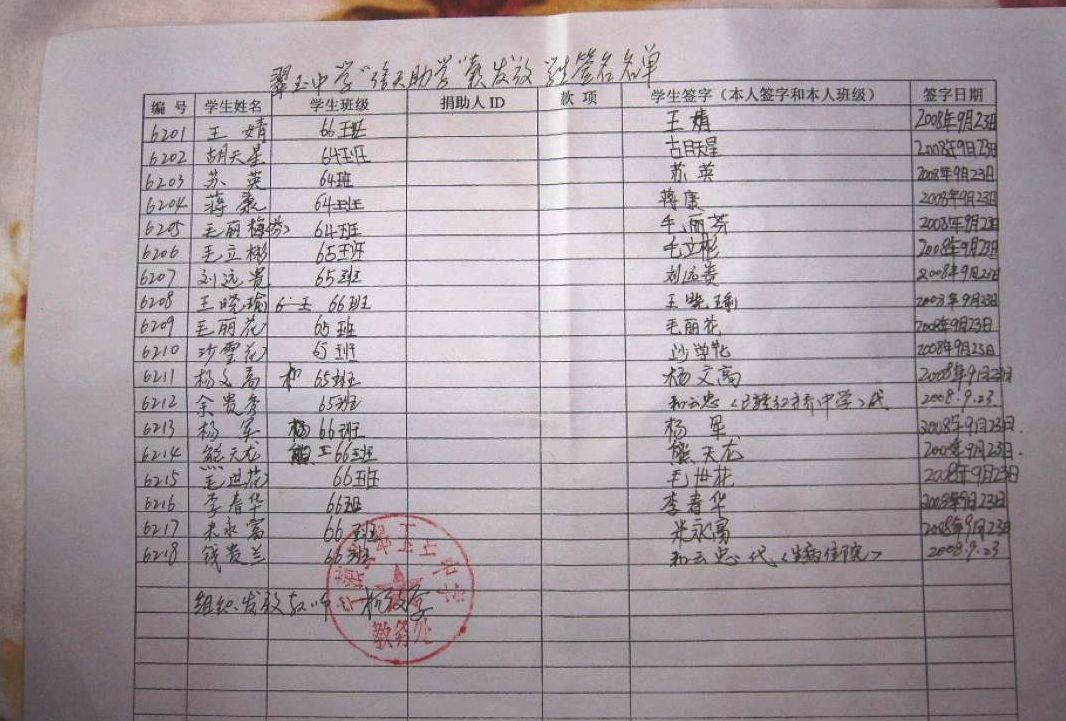 翠玉中学"倚天助学"款发放学生签名名单
编 号 学生姓名 学生班级 捐助人ID 款 项 学生签字（本人签字和本人班级） 签字日期
6201 王 婧 66班 王 婧 2008年9月23日
6202 胡天星 64班 胡天星 2008年9月23日
6203 苏 英 64班 苏 英 2008年9月23日
6204 蒋 康 64班 蒋 康 2008年9月23日
6205 毛丽梅(芬) 64班 毛丽芬 2008年9月23日
6206 毛立彬 65班 毛立彬 2008年9月23日
6207 刘远贵 65班 刘远贵 2008年9月23日
6208 王晓瑜 66班 王晓瑜 2008年9月23日
6209 毛丽花 65班 毛丽花 2008年9月23日
6210 沙雪花 65班 沙学花 2008年9月23日
6211 杨文高 65班 杨文高 2008年9月23日
6212 余贵 65班 和云忠 中学〉代 2008.9.23
6213 杨 军 66班 杨 军 2008年9月23日.
6214 熊天龙 66班 熊天龙 2008年9月23日.
6215 毛世花 66班 毛世花 2008年9月23日
6216 李春华 66班 李春华 2008年9月23日
6217 米永富 66班 米永富 2008年9月23日
6218 钱贵兰 66班 和云忠 代〈生病住院〉 2008.9.23
组织发放教师 杨
教务处